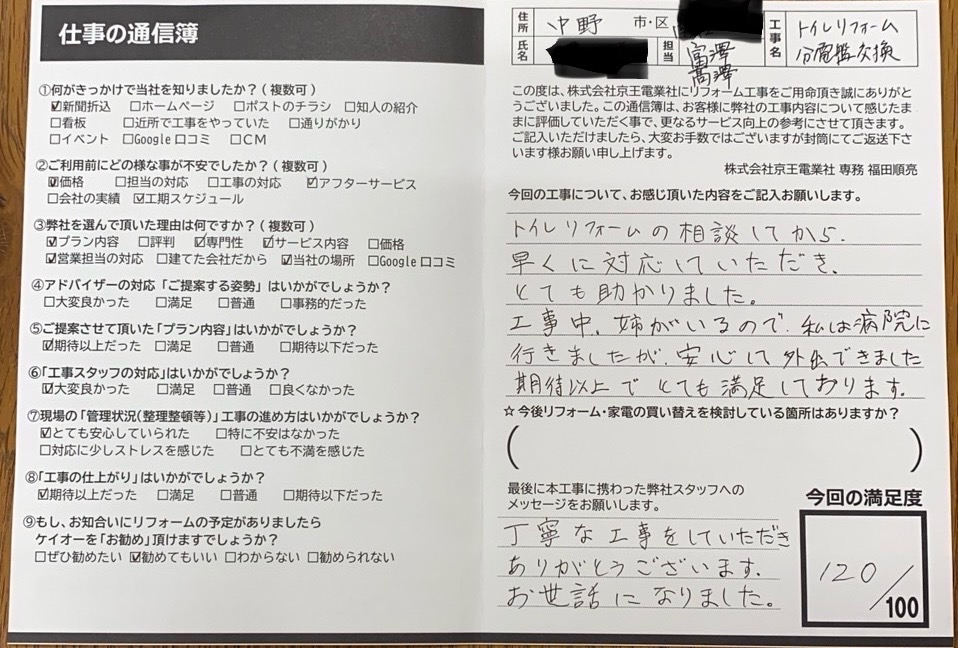 仕事の通信簿
①何がきっかけで当社を知りましたか？(複数可)
☑新聞折込 □ホームページ □ポストのチラシ □知人の紹介
□看板 □近所で工事をやっていた □通りがかり
□イベント □Google口コミ □CM
②ご利用前にどの様な事が不安でしたか？(複数可)
☑価格 □担当の対応 □工事の対応 ☑アフターサービス
□会社の実績 ☑工期スケジュール
③弊社を選んで頂いた理由は何ですか？(複数可)
☑プラン内容 □評判 ☑専門性 ☑サービス内容 □価格
☑営業担当の対応 □建てた会社だから ☑当社の場所 □Google口コミ
④アドバイザーの対応「ご提案する姿勢」はいかがでしょうか？
□大変良かった □満足 □普通 □事務的だった
⑤ご提案させて頂いた「プラン内容」はいかがでしょうか？
☑期待以上だった □満足 □普通 □期待以下だった
⑥「工事スタッフの対応」はいかがでしょうか？
☑大変良かった □満足 □普通 □良くなかった
⑦現場の「管理状況(整理整頓等)」工事の進め方はいかがでしょうか？
☑とても安心していられた □特に不安はなかった
□対応に少しストレスを感じた □とても不満を感じた
⑧「工事の仕上がり」はいかがでしょうか？
☑期待以上だった □満足 □普通 □期待以下だった
⑨もし、お知合いにリフォームの予定がありましたら
ケイオーを「お勧め」頂けますでしょうか？
□ぜひ勧めたい ☑勧めてもいい □わからない □勧められない
住所 中野 市・区
氏名
担当 富澤
髙澤
工事名 トイレリフォーム
分電盤交換
この度は、株式会社京王電業社にリフォーム工事をご用命頂き誠にありがと
うございました。この通信簿は、お客様に弊社の工事内容について感じたま
まに評価していただく事で、更なるサービス向上の参考にさせて頂きます。
ご記入いただけましたら、大変お手数ではございますが封筒にてご返送下さ
います様お願い申し上げます。
株式会社京王電業社 専務 福田順亮
今回の工事について、お感じ頂いた内容をご記入お願いします。
トイレリフォームの相談してから、
早くに対応していただき、
とても助かりました。
工事中、姉がいるので、私は病院に
行きましたが、安心して外出できました
期待以上でとても満足しております。
☆今後リフォーム・家電の買い替えを検討している箇所はありますか？
( )
最後に本工事に携わった弊社スタッフへの
メッセージをお願いします。
丁寧な工事をしていただき
ありがとうございます。
お世話になりました。
今回の満足度
120/100